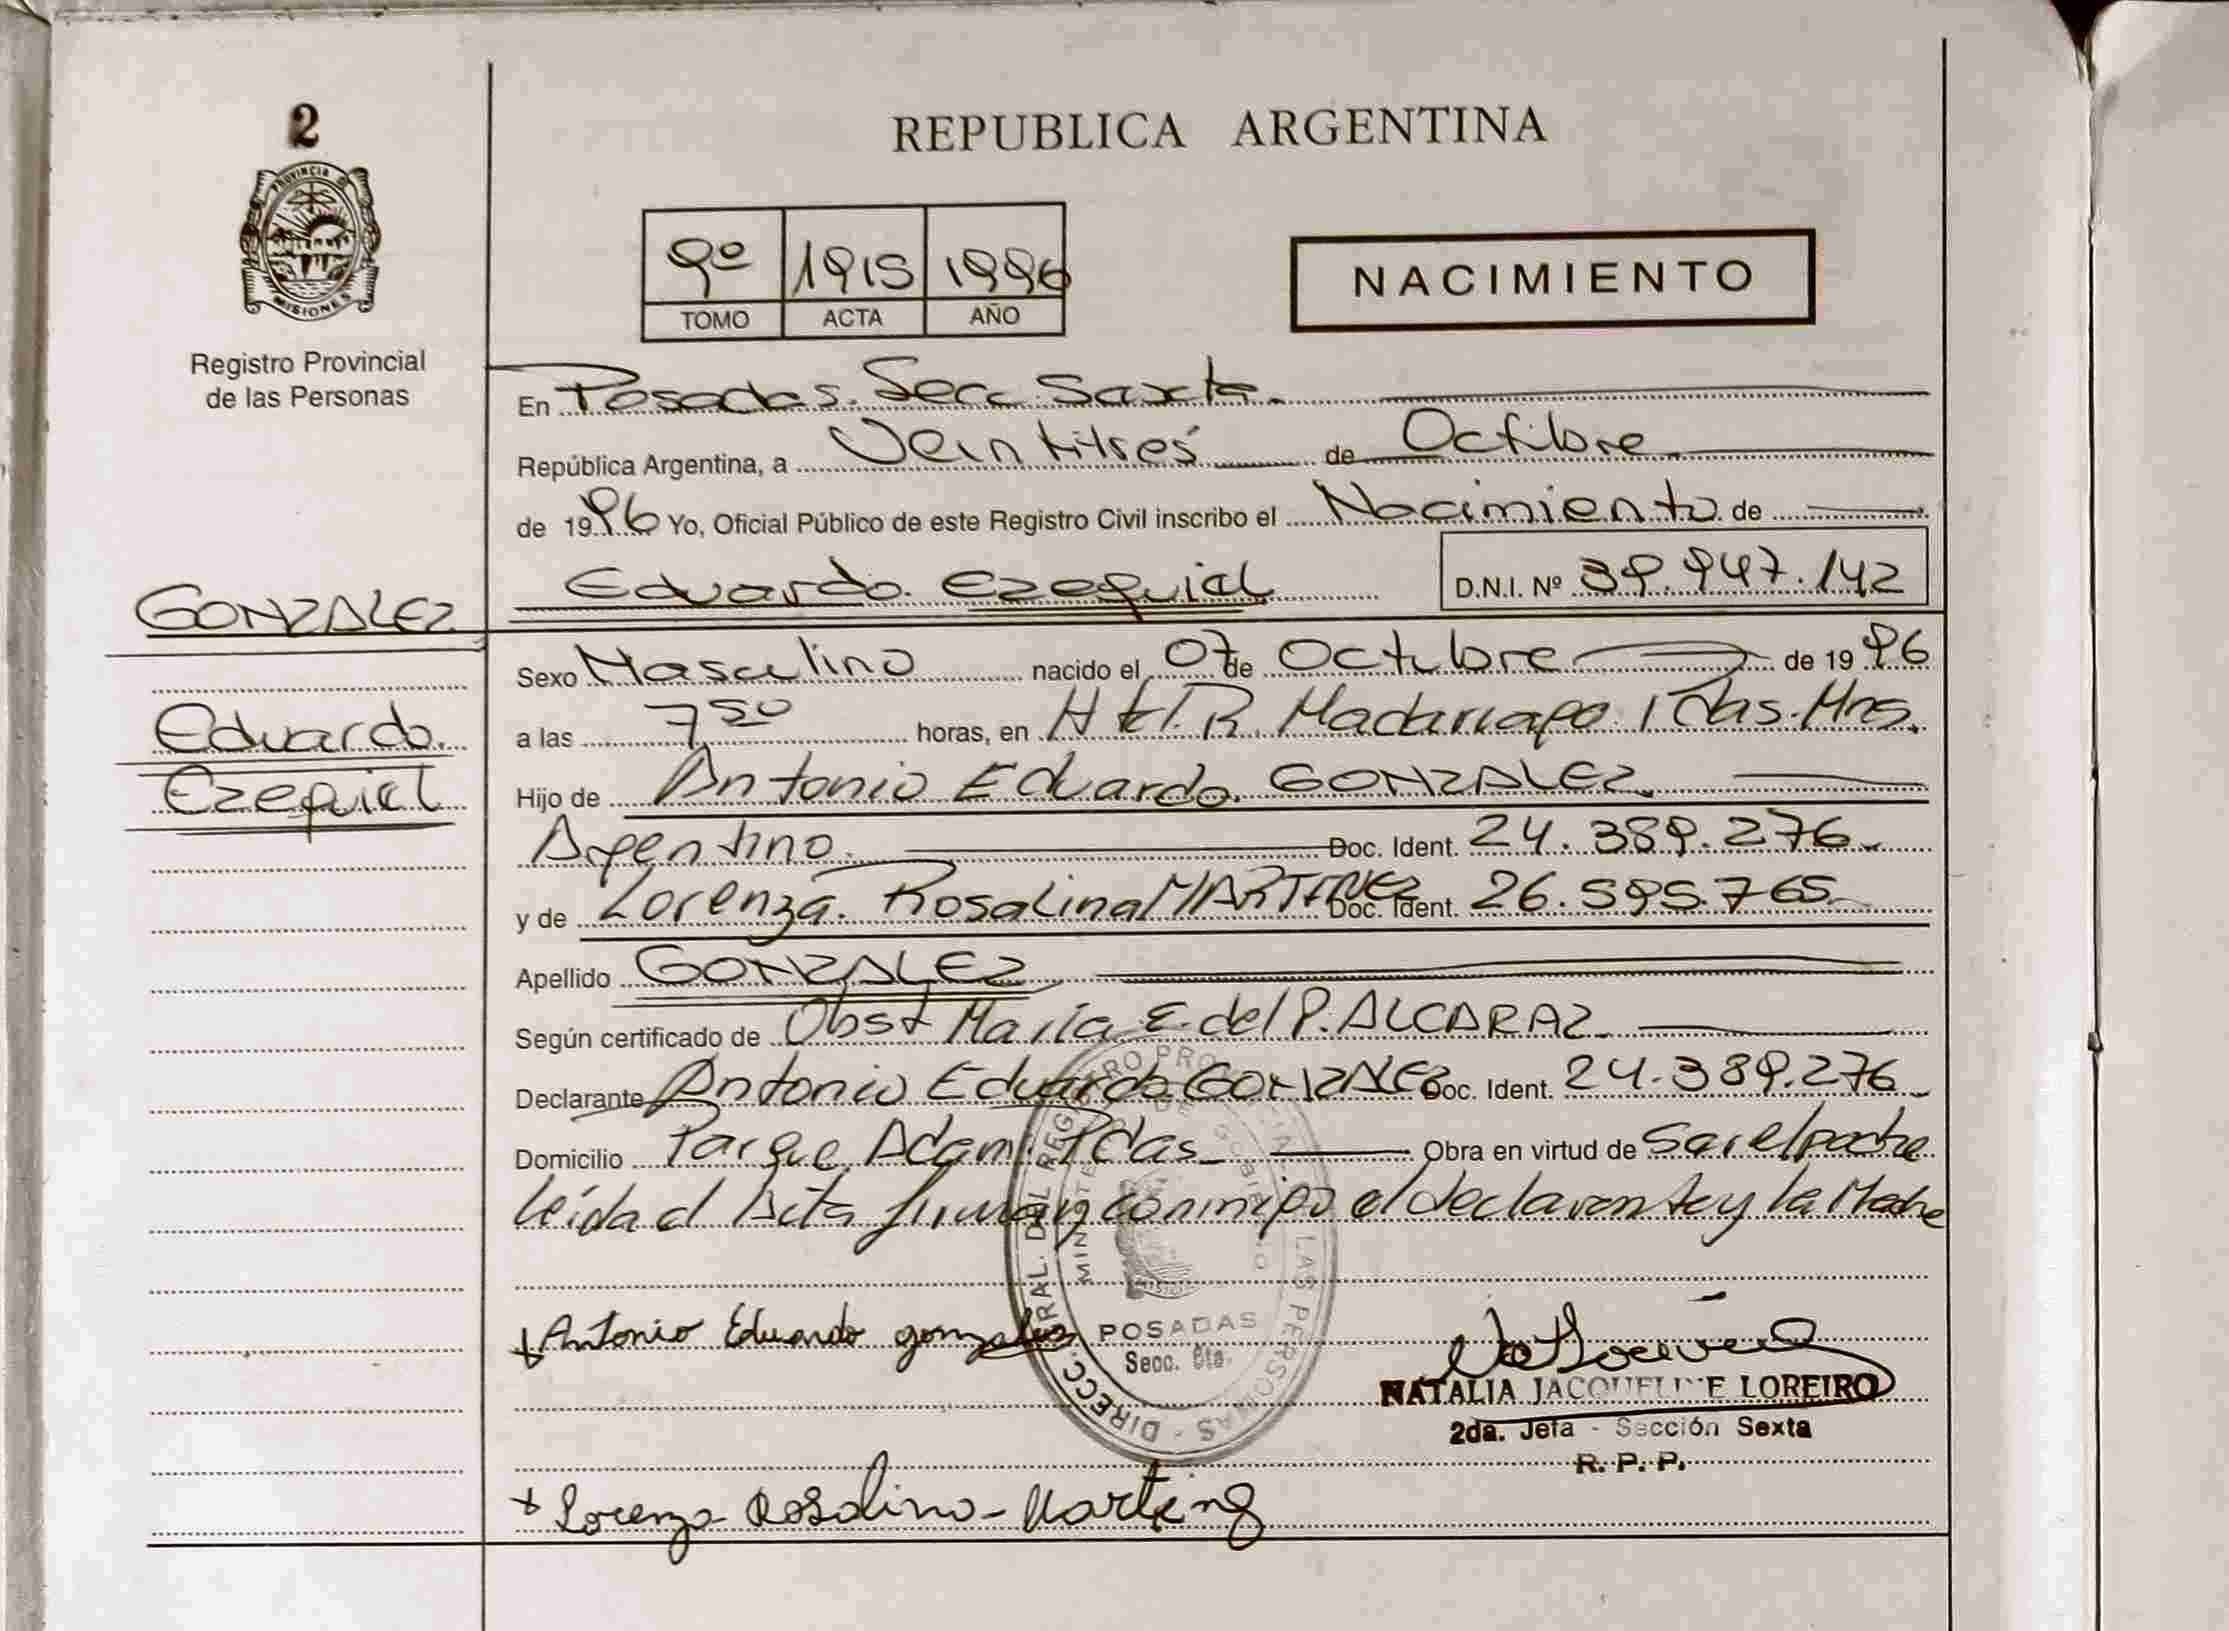 2
PROVINCIA D
MISIONES
Registro Provincial
de las Personas
GONZALEZ
Eduardo
Ezequiel
REPUBLICA ARGENTINA
9º 1915 1996
TOMO ACTA AÑO
NACIMIENTO
En Posadas. Secc. Sexta.
República Argentina, a Veintitres de Octubre
de 1996 Yo, Oficial Público de este Registro Civil inscribo el Nacimiento de
Eduardo Ezequiel D.N.I. Nº 39.947.142
Sexo Masculino nacido el 07 de Octubre de 1996
a las 7 horas, en Madariaga Pdas. Mnes.
Hijo de Antonio Eduardo GONZALEZ
Argentino. Doc. Ident. 24.389.276
y de Lorenza Rosalina MARTINEZ Doc. Ident. 26.595.765
Apellido GONZALEZ
Según certificado de Obst Maria E. del P. ALCARAZ
Declarante Antonio Eduardo GONZALEZ Doc. Ident. 24.389.276
Domicilio Parque Adam. Pdas Obra en virtud de Ser el padre
leida el Acta firman conmigo el declarante y la Madre
Antonio Eduardo gonzalez
DIRECC. GRAL. DEL REGISTRO PROVINCIAL DE LAS PERSONAS
POSADAS
Secc. 6ta.
NATALIA JACQUELINE LOREIRO
2da. Jefa - Sección Sexta
R. P. P.
Lorenza Rosalina Martinez